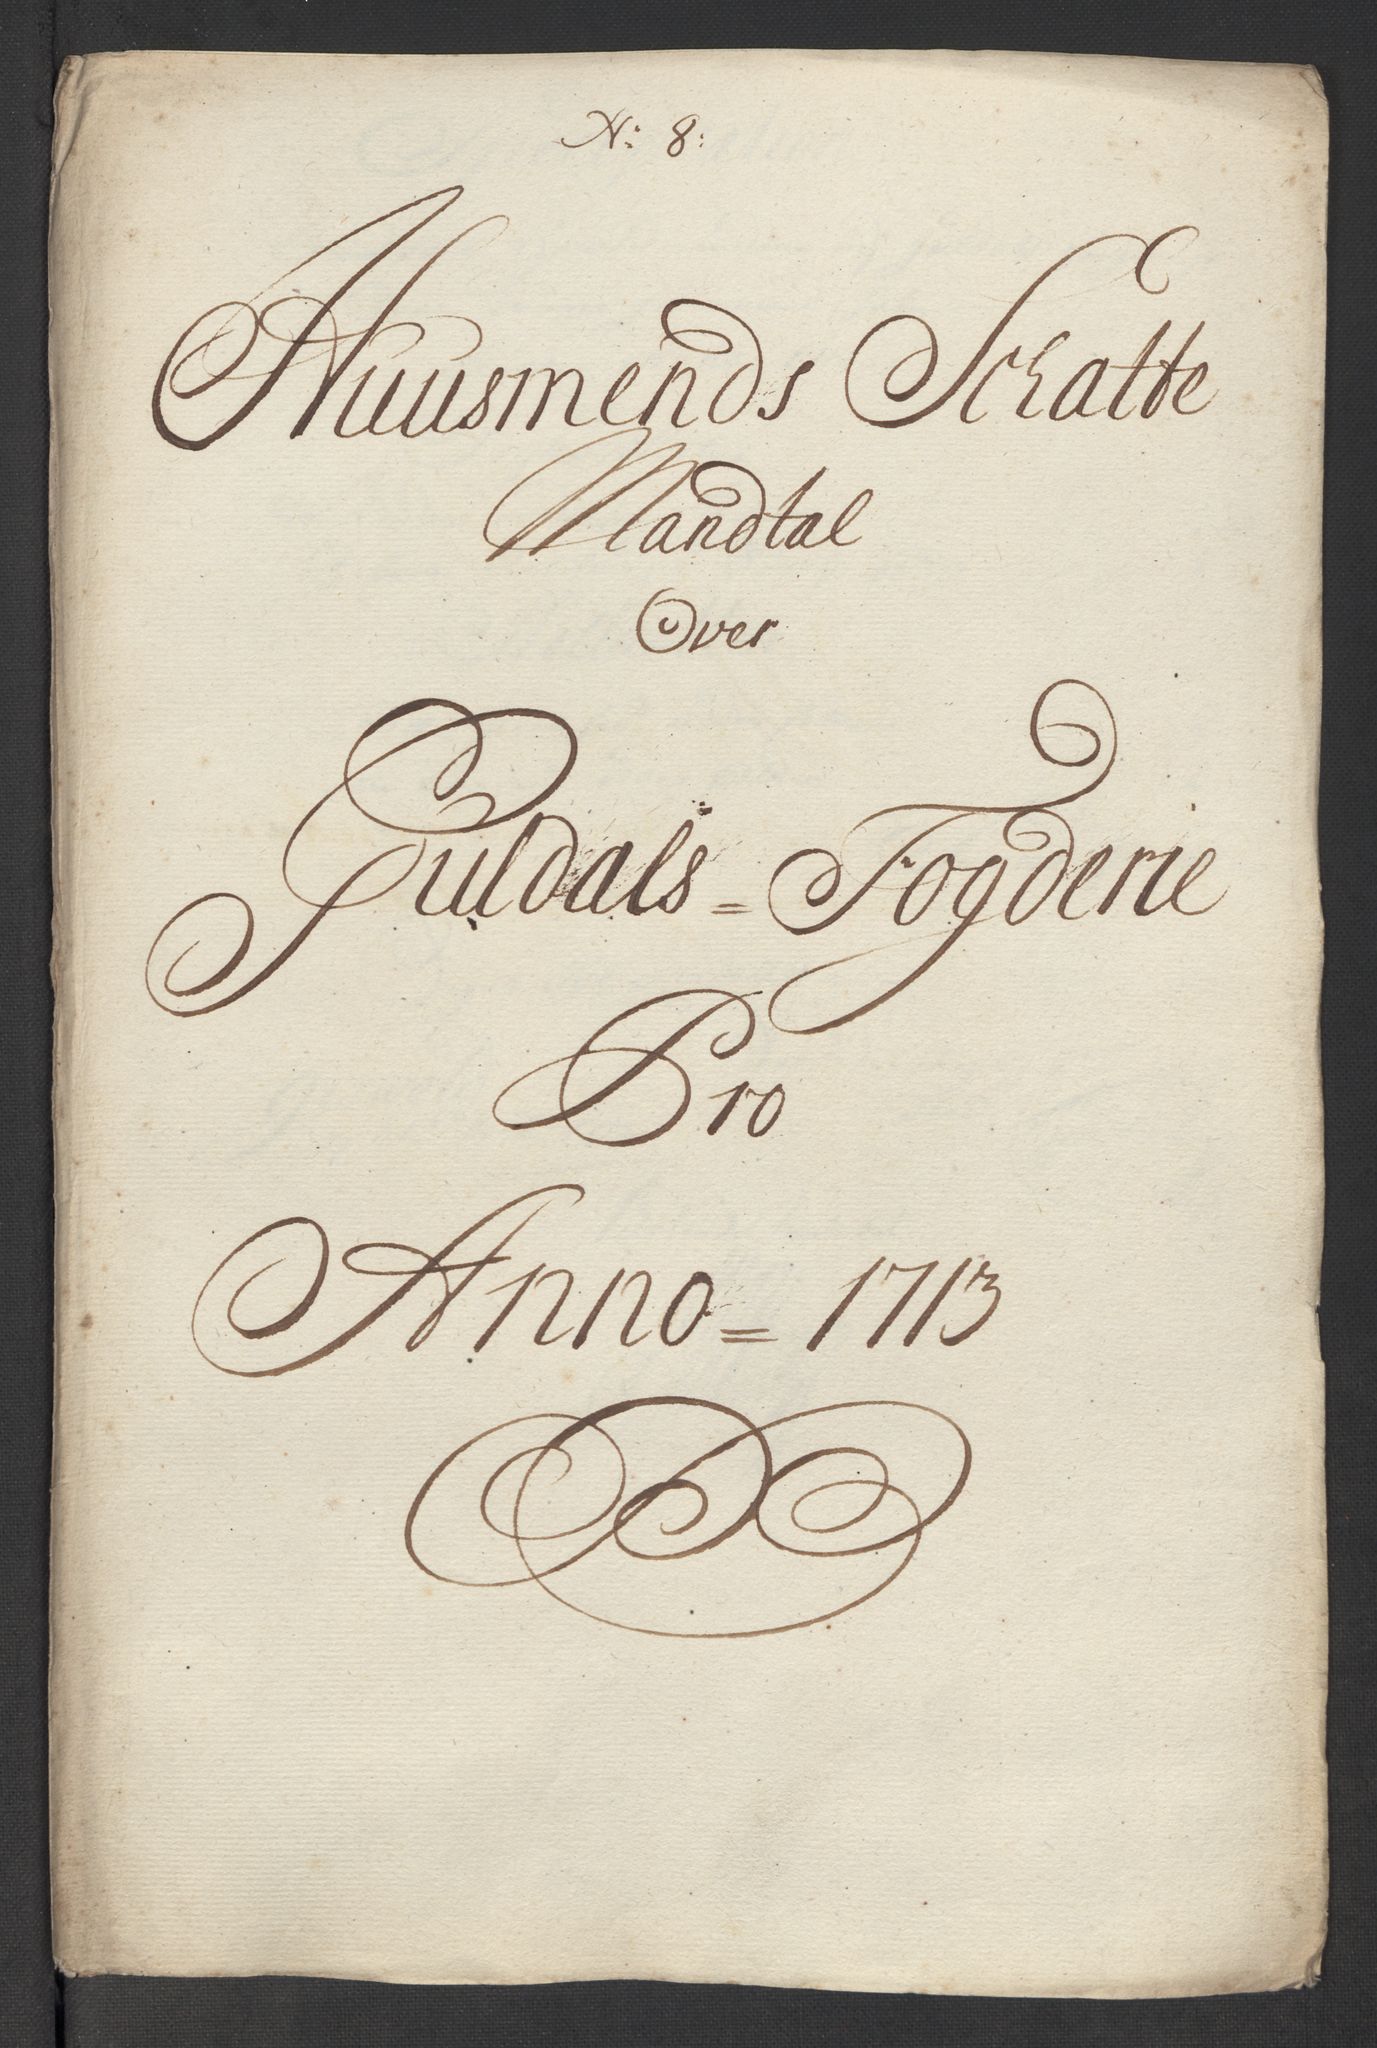 N: 8:
Huusmends Schatte
Mandtal
Over
Guldals = Fogderie
Pro
Anno = 1713